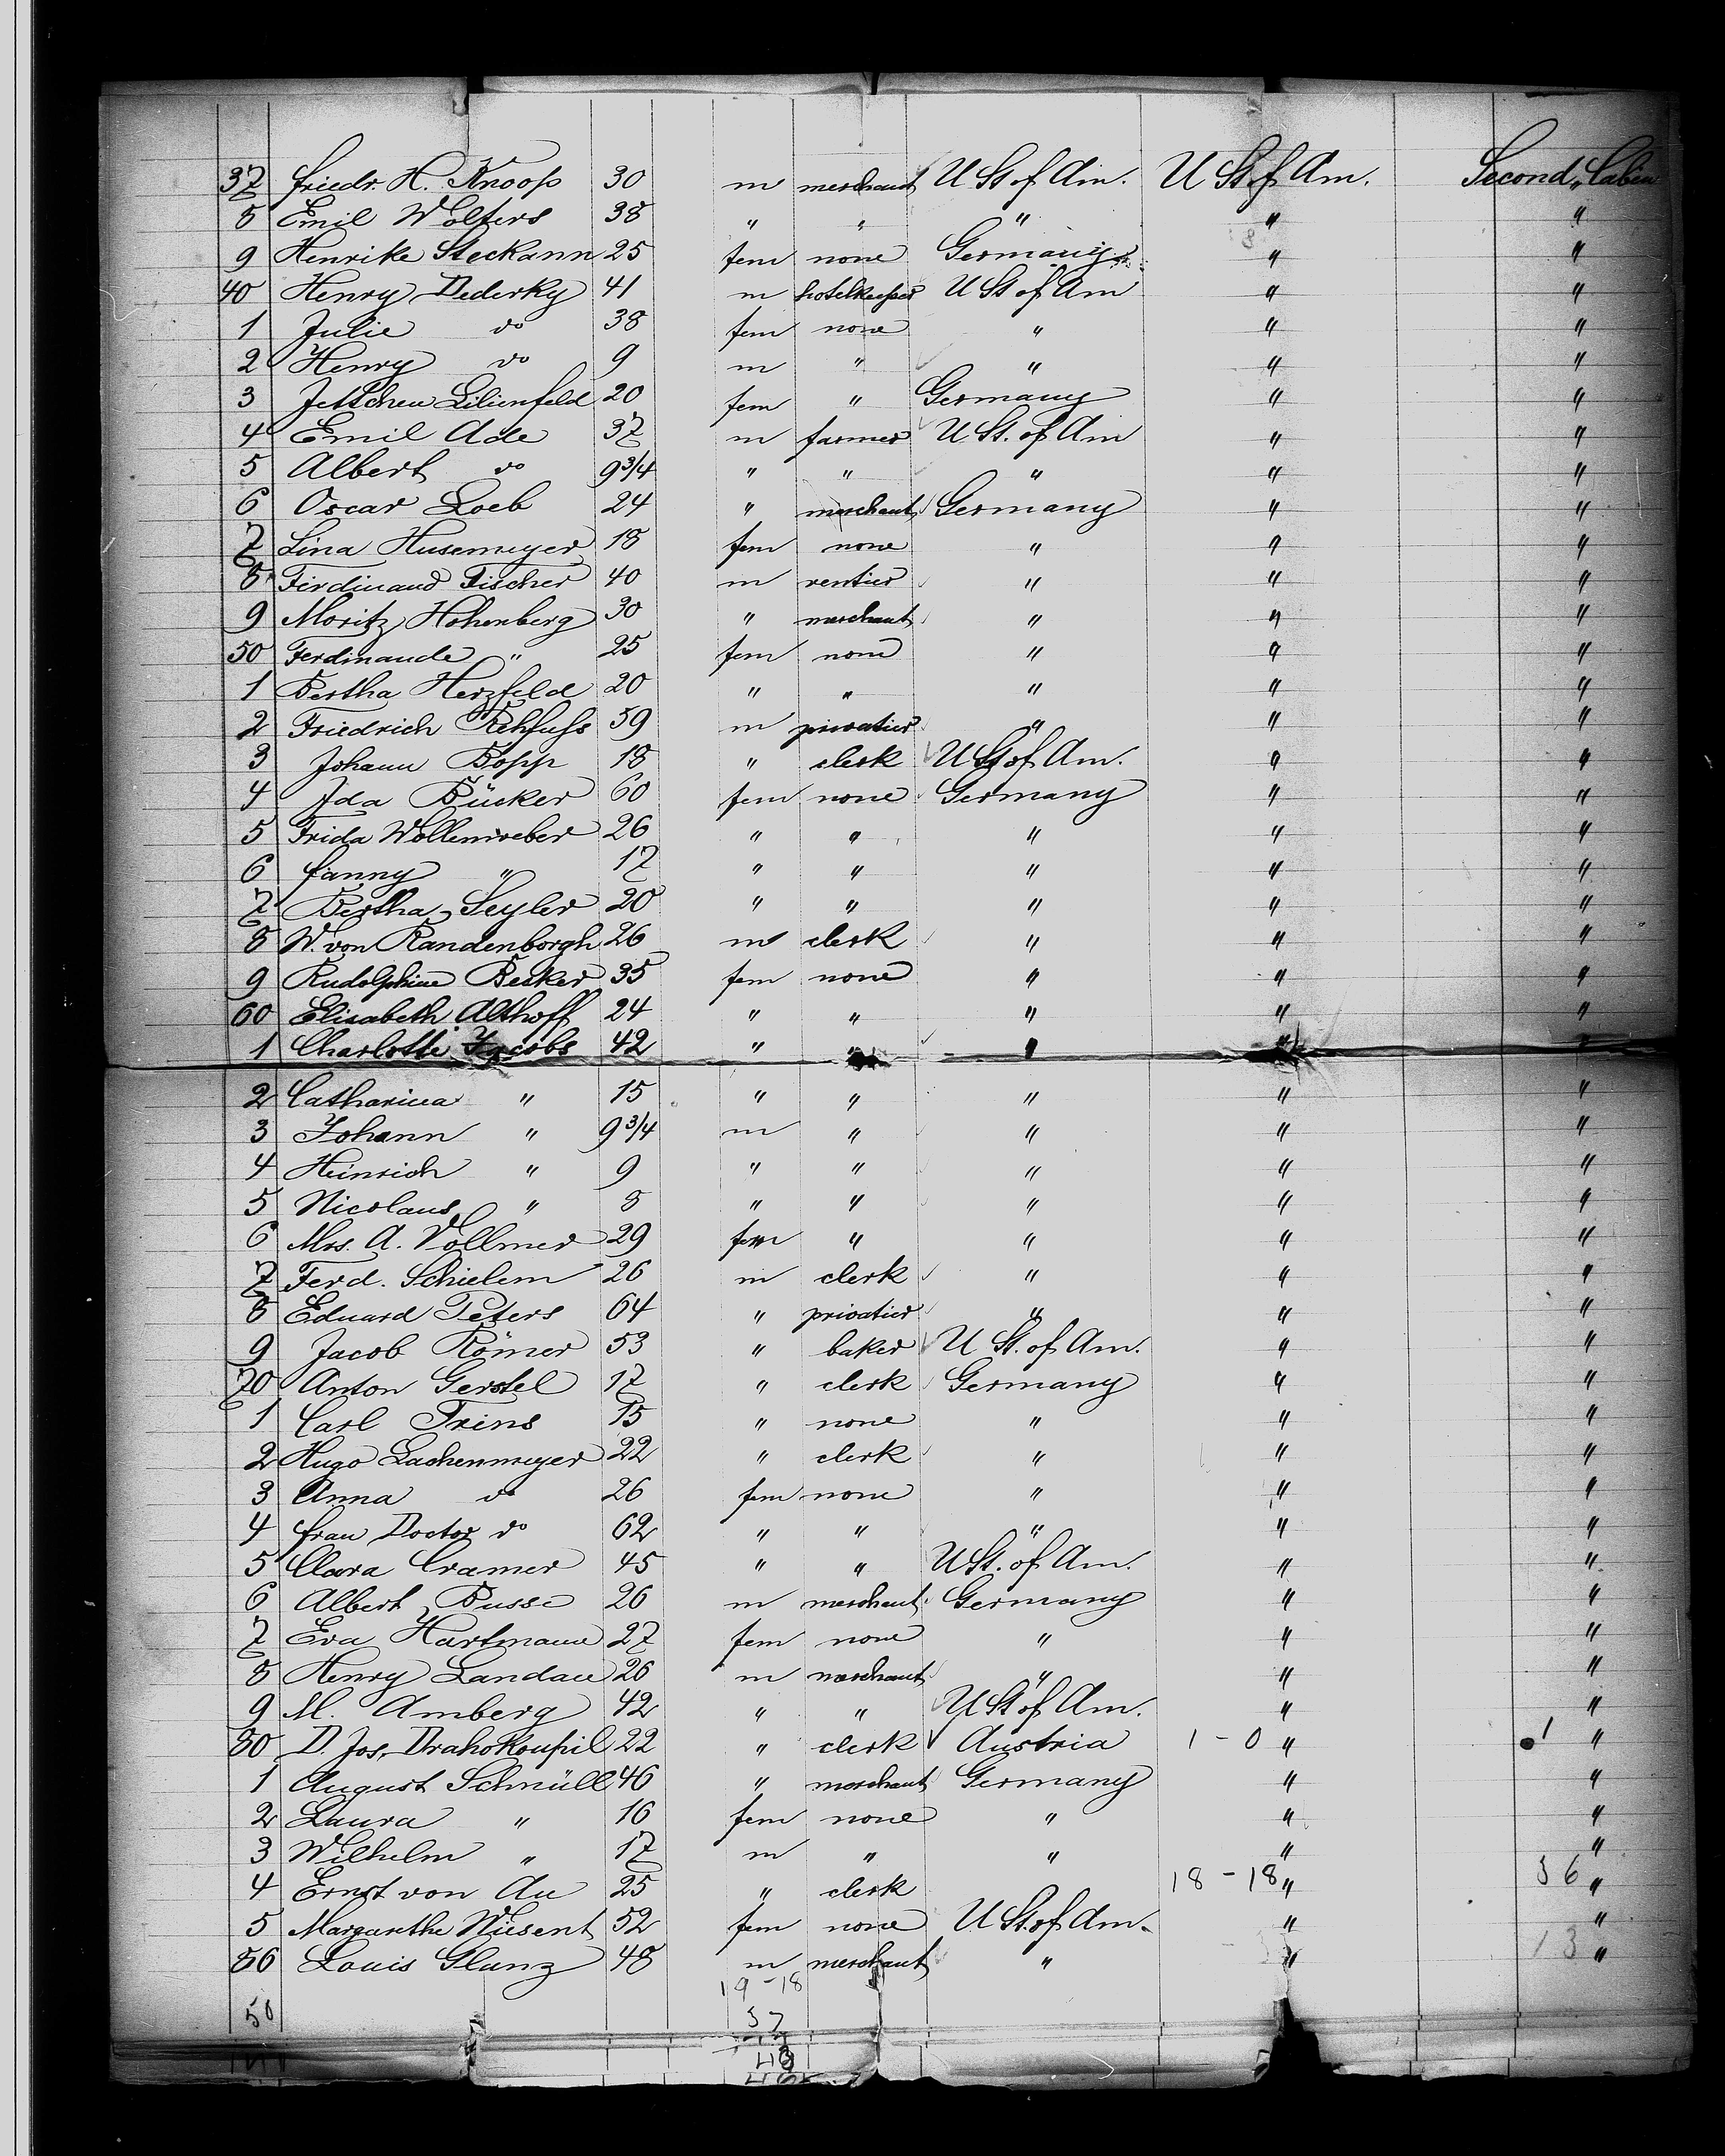 37 Friedr. H. Knoop 30 m merchant U St of Am. U St of Am. Second Cabin
8 Emil Wolters 38 " " " " "
9 Henrike Steckann 25 fem none Germany " "
40 Henry Dederky 41 m hotelkeeper U St of Am " "
1 Julie do 38 fem none " " "
2 Henry do 9 m " " " "
3 Jettchen Lilienfeld 20 fem " Germany " "
4 Emil Ade 37 m farmer U St. of Am " "
5 Albert do 9 3/4 " " " " "
6 Oscar Loeb 24 " merchant Germany " "
7 Lina Husemeyer 18 fem none " " "
8 Ferdinand Fischer 40 m rentier " " "
9 Moritz Hohenberg 30 " merchant " " "
50 Ferdinande " 25 fem none " " "
1 Bertha Herzfeld 20 " " " " "
2 Friedrich Rehfuss 59 m privatier " " "
3 Johann Bopp 18 " clerk U St of Am. " "
4 Ida Bücker 60 fem none Germany " "
5 Frida Wollenweber 26 " " " " "
6 Fanny " 17 " " " " "
7 Bertha Seyler 20 " " " " "
8 W. von Randenborgh 26 m clerk " " "
9 Rudolphine Becker 35 fem none " " "
60 Elisabeth Althoff 24 " " " " "
1 Charlotte Jacobs 42 " " " " "
2 Catharina " 15 " " " " "
3 Johann " 9 3/4 m " " " "
4 Heinrich " 9 " " " " "
5 Nicolaus " 8 " " " " "
6 Mrs. A. Vollmer 29 fem " " " "
7 Ferd. Schielem 26 m clerk " " "
8 Eduard Peters 64 " privatier " " "
9 Jacob Römer 53 " baker U St. of Am. " "
70 Anton Gerstel 17 " clerk Germany " "
1 Carl Trins 15 " none " " "
2 Hugo Lachenmeyer 22 " clerk " " "
3 Anna do 26 fem none " " "
4 Frau Doctor do 62 " " " " "
5 Clara Cramer 45 " " U St. of Am. " "
6 Albert Busse 26 m merchant Germany " "
7 Eva Hartmann 27 fem none " " "
8 Henry Landau 26 m merchant " " "
9 M. Amberg 42 " " U St of Am. " "
80 D. Jos. Drahokoupil 22 " clerk Austria 1 - 0 " 1 "
1 August Schmüll 46 " merchant Germany " "
2 Laura " 16 fem none " " "
3 Wilhelm " 17 m " " " "
4 Ernst von Au 25 " clerk 18 - 18 " 36 "
5 Margarethe Wiesent 52 fem none U St. of Am. " "
86 Louis Glanz 48 m merchant " " 13 "
19 - 18
50 37